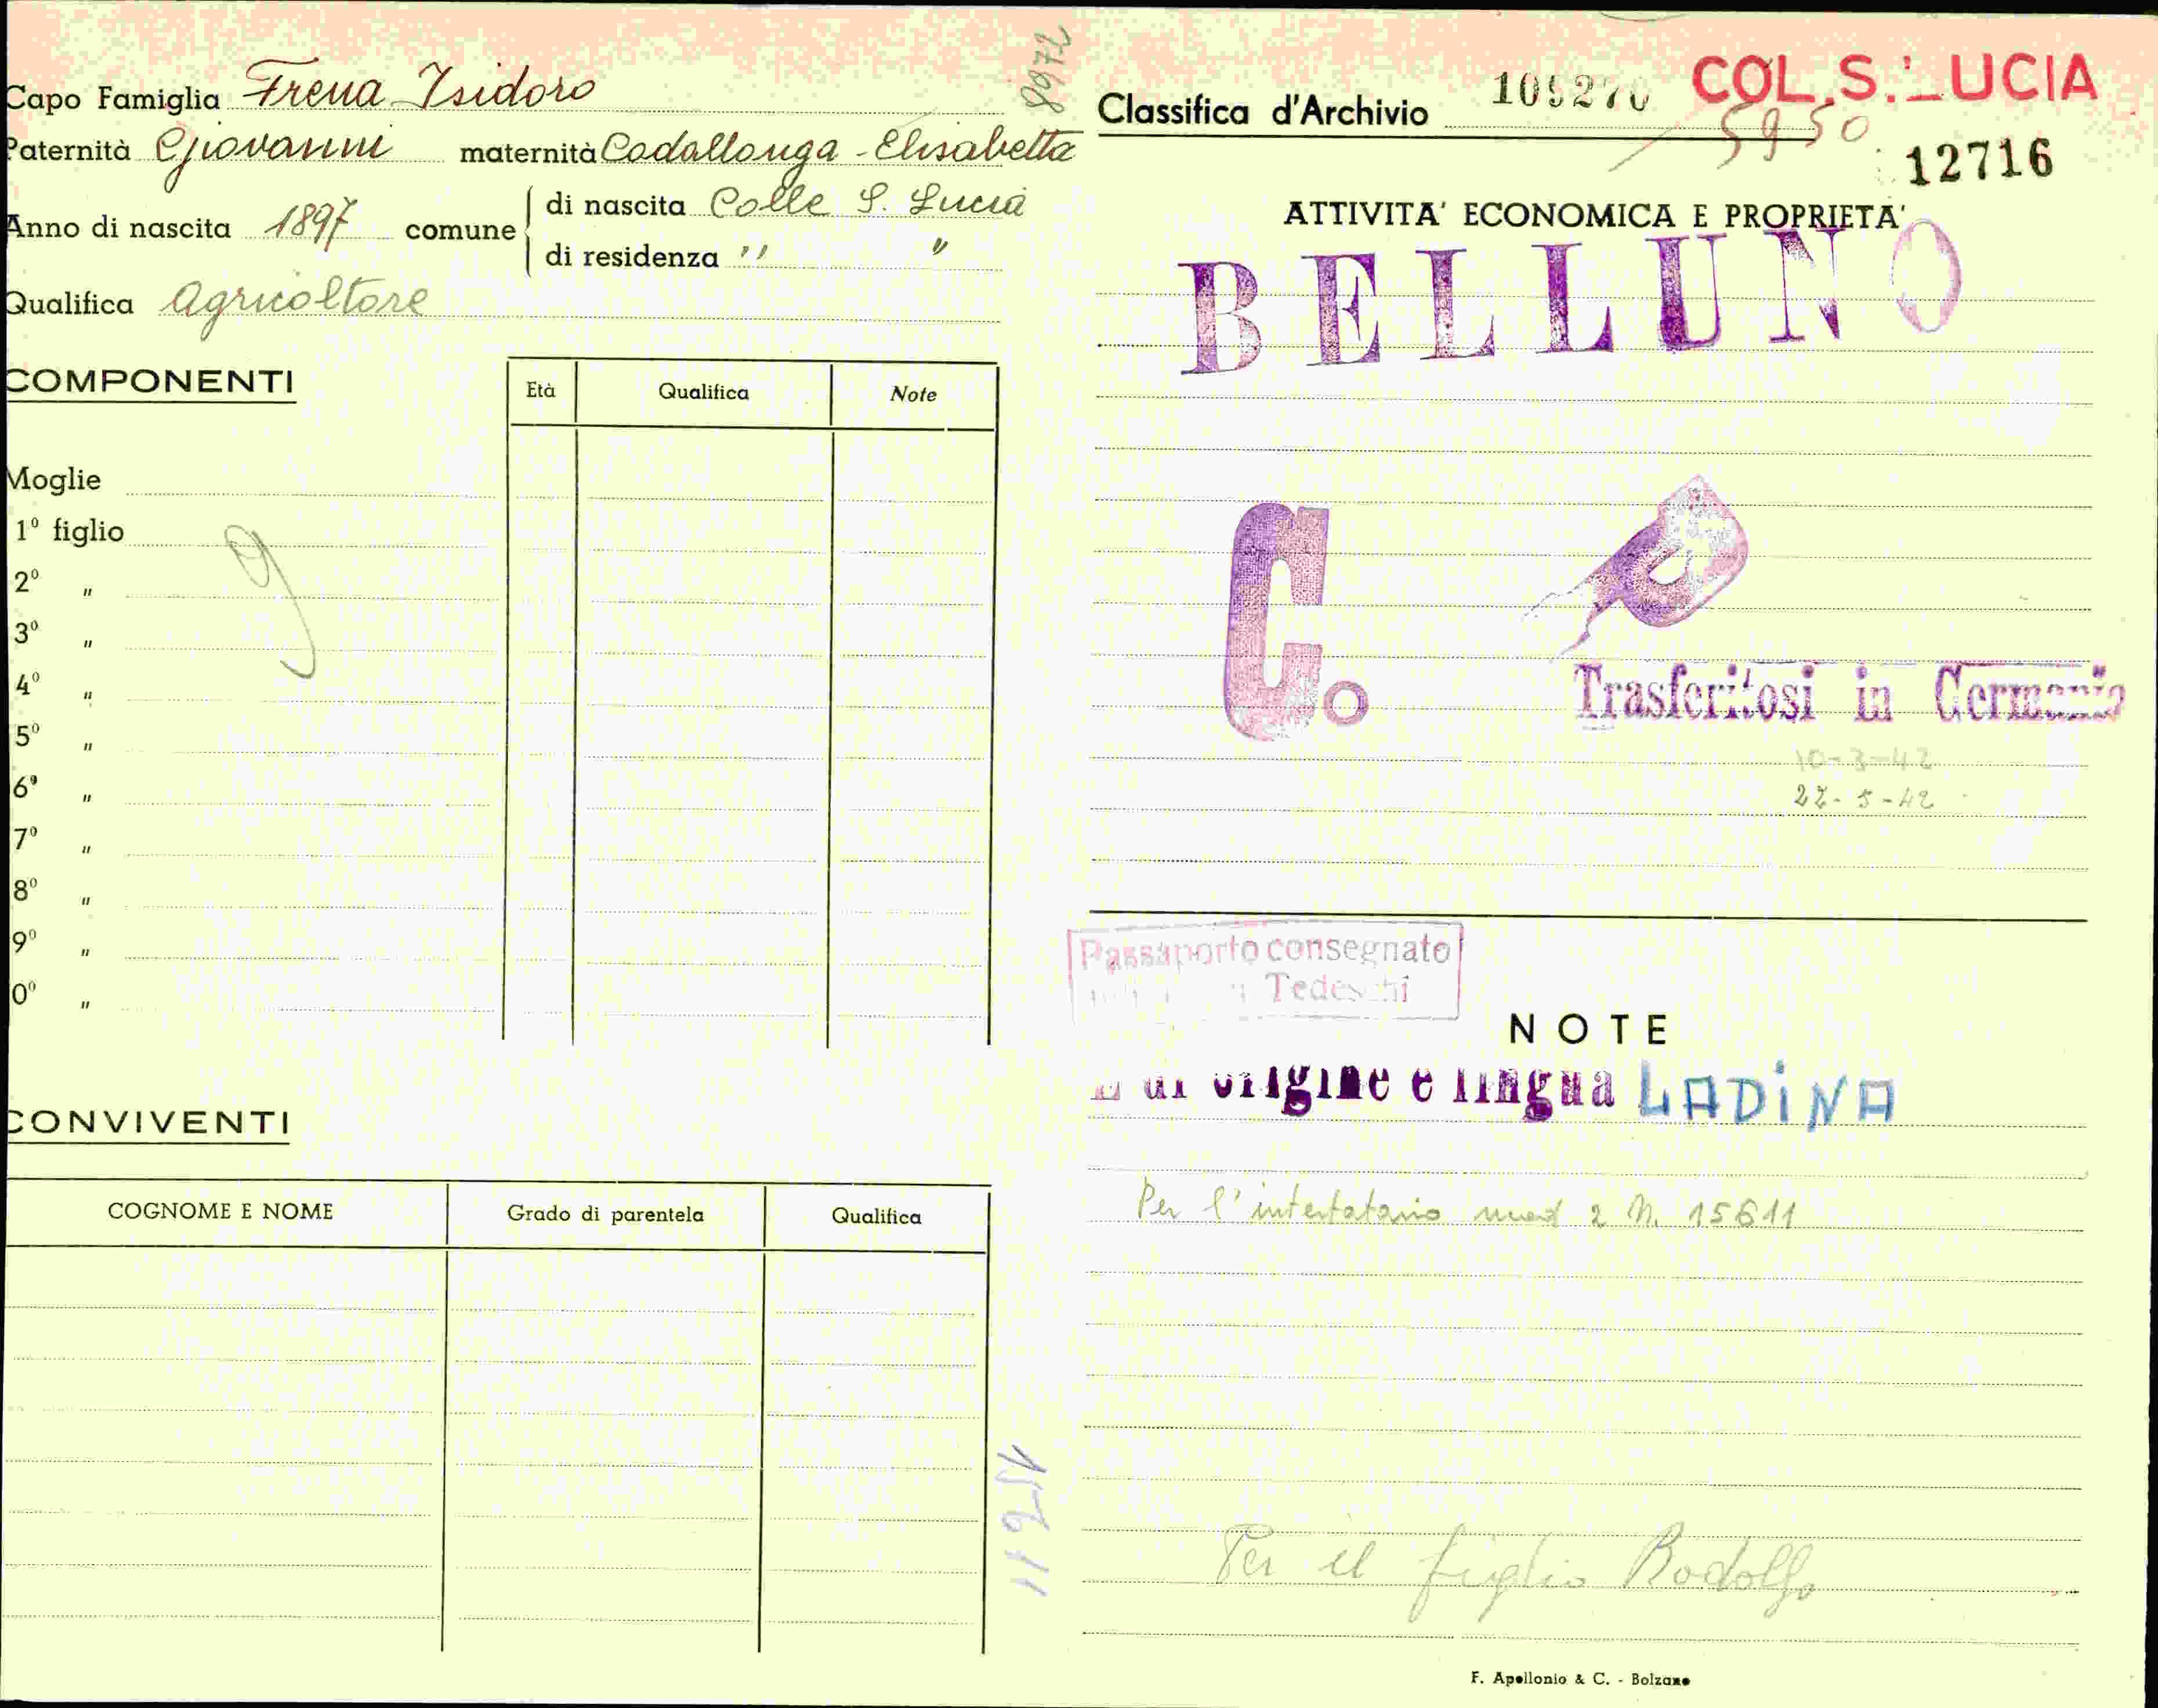 Capo Famiglia Frena Isidoro
Paternità Giovanni maternità Codallonga - Elisabetta
Anno di nascita 1897 comune
di nascita Colle S. Lucia
di residenza " "
Qualifica Agricoltore
8972
COMPONENTI
Età Qualifica Note
Moglie
1º figlio
2º "
3º "
4º "
5º "
6º "
7º "
8º "
9º "
0º "
9
CONVIVENTI
COGNOME E NOME Grado di parentela Qualifica
15611
Classifica d'Archivio COL. S. LUCIA
5950
12716
ATTIVITA' ECONOMICA E PROPRIETA'
BELLUNO
C.
Trasferitosi in Germania
10-3-42
27-5-42
Passaporto consegnato
Tedeschi
NOTE
di origine e lingua LADINA
Per l'intestatario mod 2 N. 15611
Per il figlio Rodolfo
F. Apollonio & C. - Bolzano